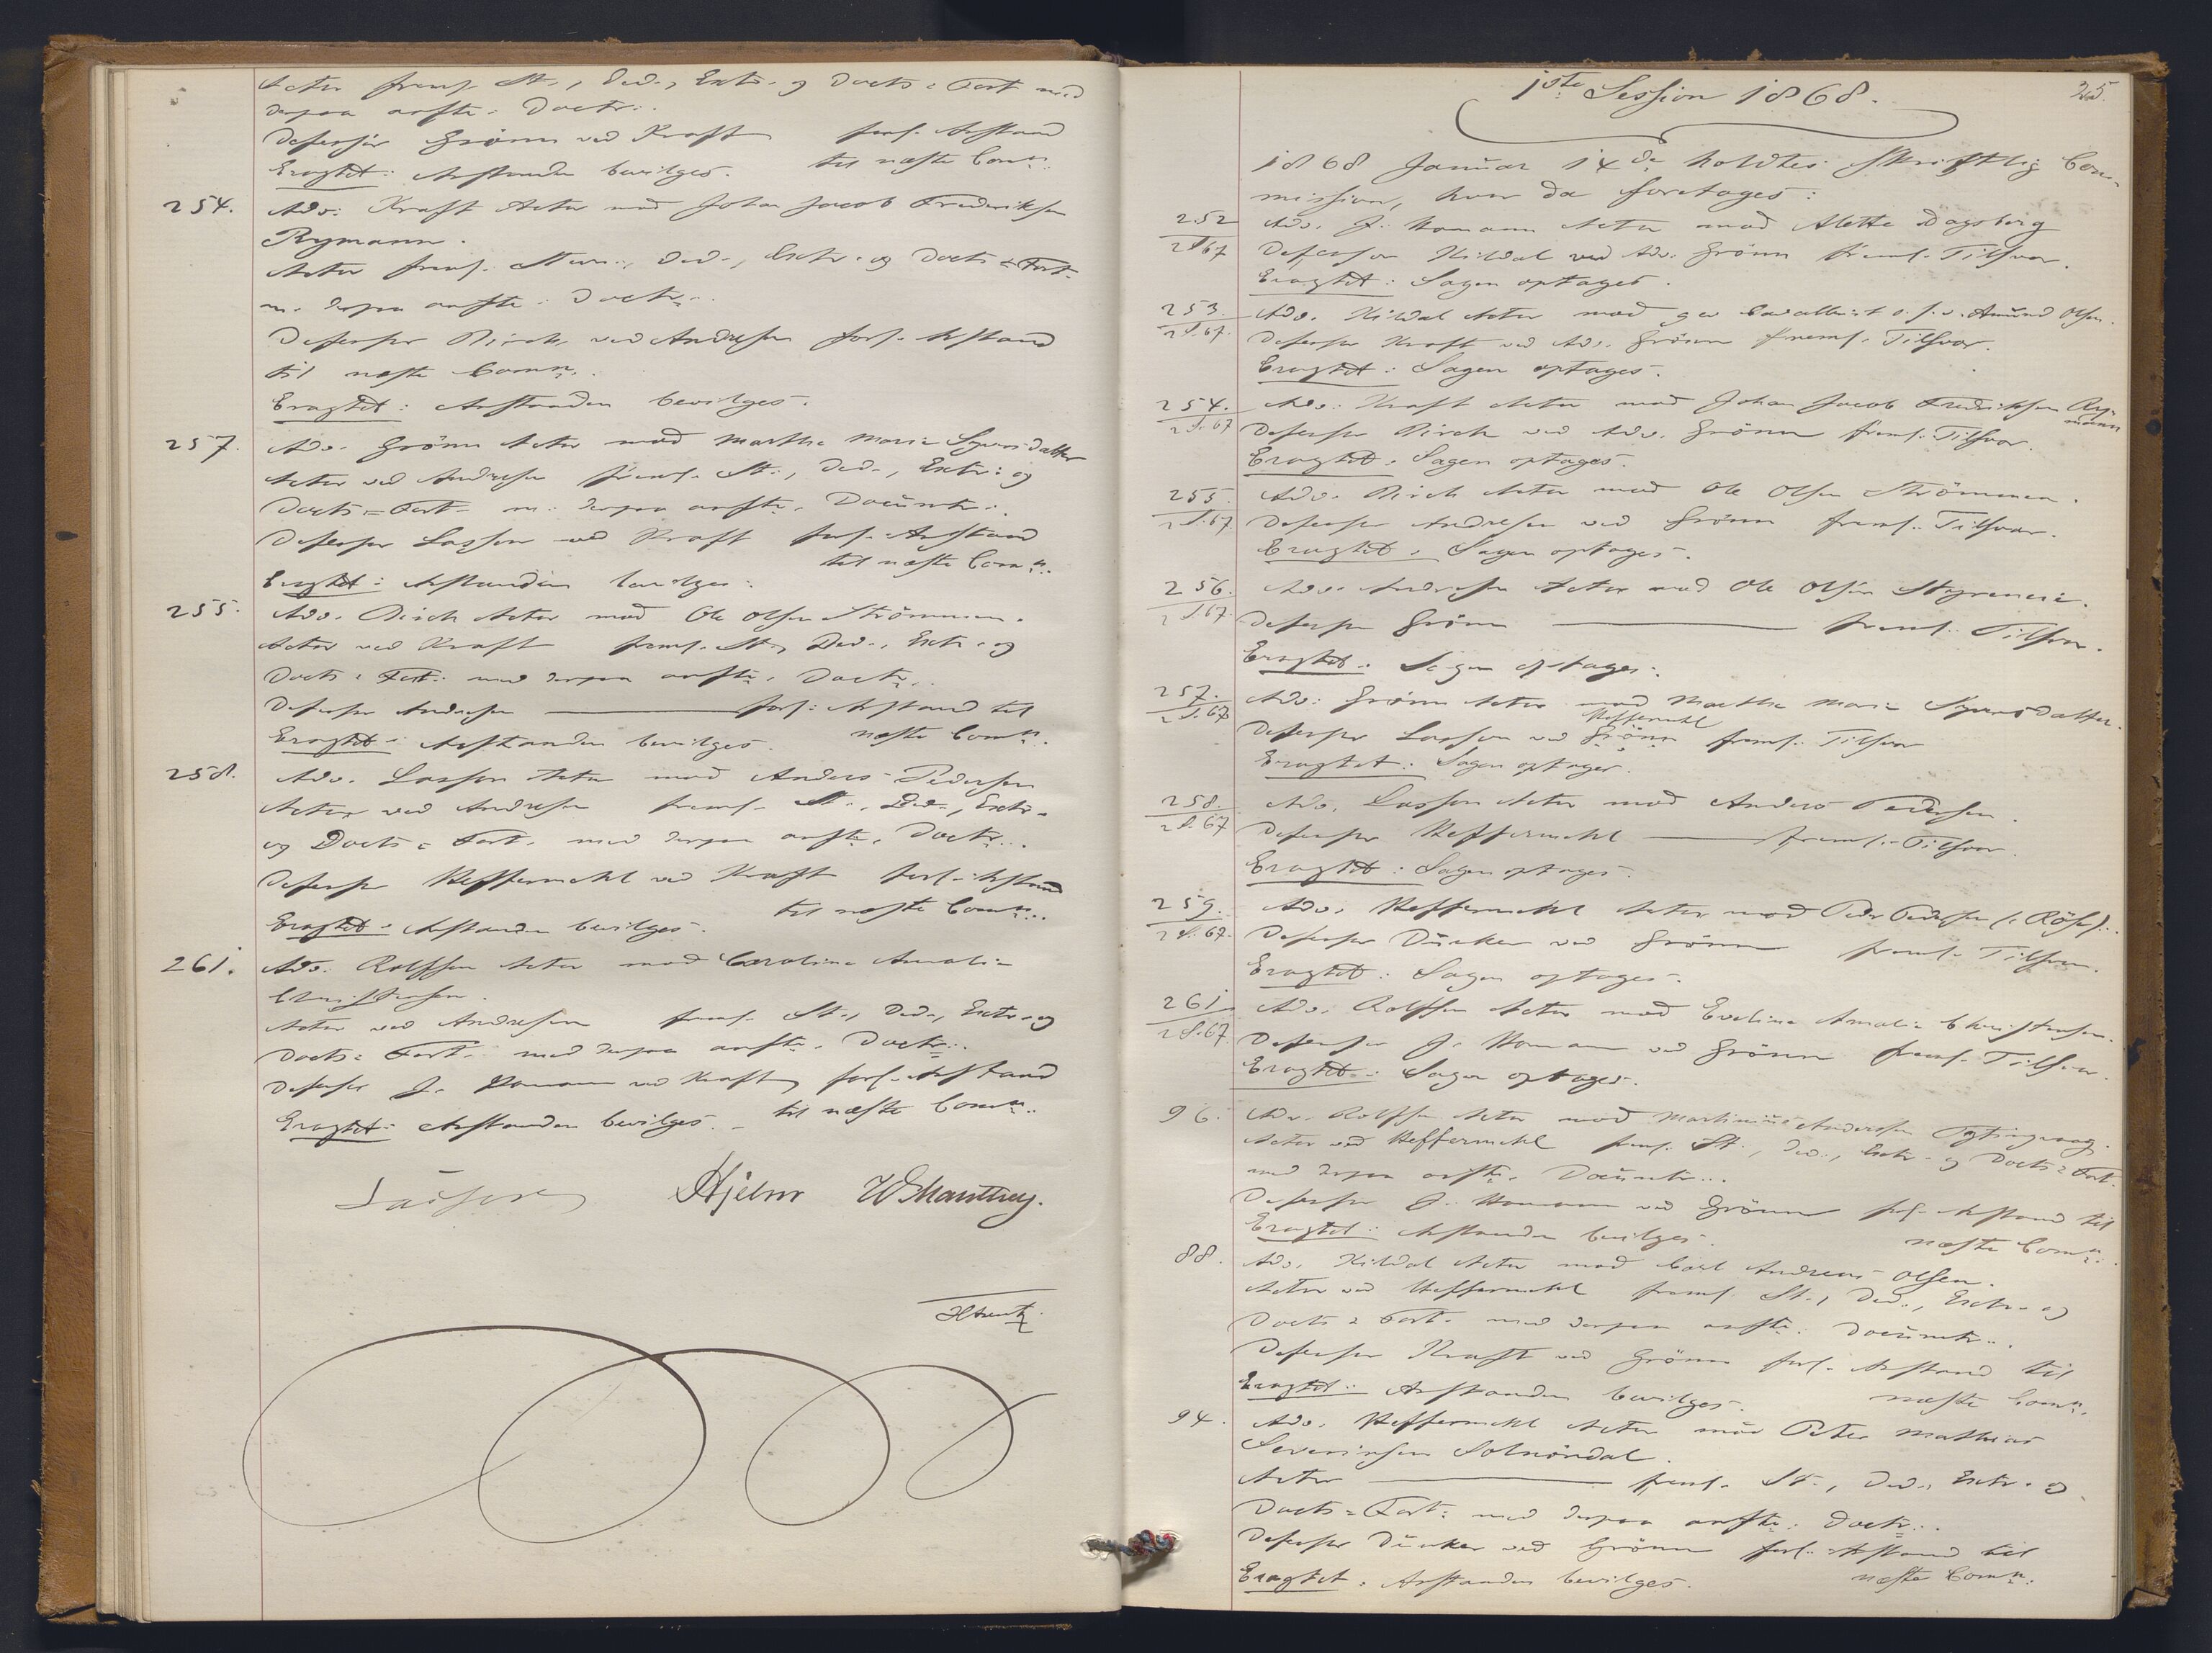 Actor freml. St., Ded., Extr. og Docts = Fort med
derpaa anfte. Doctr.
Defensor Grönn ved Kraft forl. Anstand
til næste Comn.
Eragtet: Anstanden bevilges.
254. Adv. Kraft Actor mod Johan Jacob Frederiksen
Rymann.
Actor freml. Stevn., Ded., Extr. og Docts = Fort.
m. derpaa anfte. Doctr.
Defensor Birch ved Andresen forl. Anstand
til næste Comn.
Eragtet: Anstanden bevilges.
257. Adv. Grönn Actor mod Martha Maria Syversdatter
Actor ved Andresen freml. St., Ded., Extr. og
Docts = Fort. m. derpaa anfte. Documtr.
Defensor Lasson ved Kraft forl. Anstand
til næste Comn.
Eragtet: Anstanden bevilges.
255. Adv. Birch Actor mod Ole Olsen Strömmen.
Actor ved Kraft freml. St., Ded., Extr. og
Docts = Fort. med derpaa anfte. Doctr.
Defensor Andresen forl. Anstand til
næste Comn.
Eragtet: Anstanden bevilges.
258. Adv. Lasson Actor mod Anders Pedersen
Actor ved Andresen freml. St., Ded., Extr.
og Docts = Fort. med derpaa anfte. Doctr.
Defensor Heffermehl ved Kraft forl. Anstand
til næste Comn.
Eragtet: Anstanden bevilges.
261. Adv. Rolffsen Actor mod Caroline Amalie
Christensen.
Actor ved Andresen freml. St., Ded., Extr. og
Docts = Fort. med derpaa anfte. Doctr.
Defensor J. Homann ved Kraft forl. Anstand
til næste Comn.
Eragtet: Anstanden bevilges.
Lasson Hjelm
25.
1ste Session 1868.
1868 Januar 14de holdtes skriftlig Com-
mission, hvor da foretages:
252 / 2 S. 67 Adv. J. Homann Actor mod Alette Dagsberg
Defensor Kildal ved Adv. Grönn freml. Tilsvar.
Eragtet: Sagen optages.
253. / 2 S. 67. Adv. Kildal Actor mod gev. Cavallerist o. s. v. Amund Olsen.
Defensor Kraft ved Adv. Grönn freml. Tilsvar.
Eragtet: Sagen optages.
254. / 2 S. 67 Adv. Kraft Actor mod Johan Jacob Fredriksen Ry-
mann
Defensor Birch ved Adv. Grönn freml. Tilsvar.
Eragtet: Sagen optages.
255. / 2 S. 67 Adv. Birch Actor mod Ole Olsen Strömmen.
Defensor Andresen ved Grönn freml. Tilsvar.
Eragtet: Sagen optages.
256. / 2 S. 67. Adv. Andresen Actor mod Ole Olsen
Defensor Grönn freml. Tilsvar.
Eragtet: Sagen optages.
257. / 2 S. 67 Adv. Grönn Actor mod Marthe Maria Syversdatter.
Heffermehl
Defensor Lasson ved Grönn freml. Tilsvar
Eragtet: Sagen optages.
258. / 2 S. 67 Adv. Lasson Actor mod Anders Pedersen.
Defensor Heffermehl freml. Tilsvar.
Eragtet: Sagen optages.
259. / 2 S. 67. Adv. Heffermehl Actor mod Peder Pedersen
Defensor Dunker ved Grönn freml. Tilsvar.
Eragtet: Sagen optages.
261. / 2 S. 67 Adv. Rolffsen Actor mod Eveline Amalie Christensen.
Defensor J. Homann ved Grönn freml. Tilsvar.
Eragtet: Sagen optages.
96. Adv. Rolffsen Actor mod Martinius Andersen
Actor ved Heffermehl freml. St., Ded., Extr. og Docts = Fort.
med derpaa anfte. Documtr.
Defensor J. Homann ved Grönn forl. Anstand til
næste Comn.
Eragtet: Anstanden bevilges.
88. Adv. Kildal Actor mod Carl Andreas Olsen.
Actor ved Heffermehl freml. St., Ded., Extr. og
Docts = Fort. med derpaa anfte. Documtr.
Defensor Kraft ved Grönn forl. Anstand til
næste Comn.
Eragtet: Anstanden bevilges.
94. Adv. Heffermehl Actor mod Peter Mathias
Severinsen Solnördal.
Actor freml. St., Ded., Extr. og
Docts = Fort. med derpaa anfte. Doctr.
Defensor Dunker ved Grönn forl. Anstand til
næste Comn.
Eragtet: Anstanden bevilges.